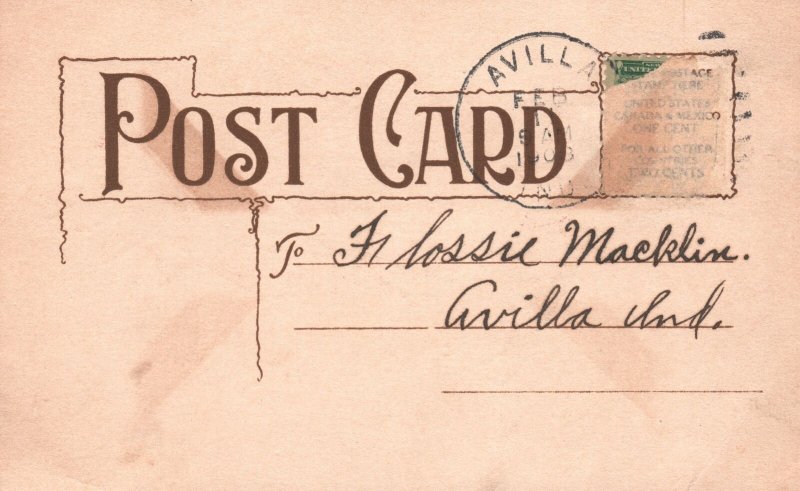 POST CARD
AVILLA
FEB
1
9 AM
1908
IND.
UNITE
POSTAGE
STAMP HERE
UNITED STATES
CANADA & MEXICO
ONE CENT
FOR ALL OTHER
COUNTRIES
TWO CENTS
To Flossie Macklin.
Avilla Ind.